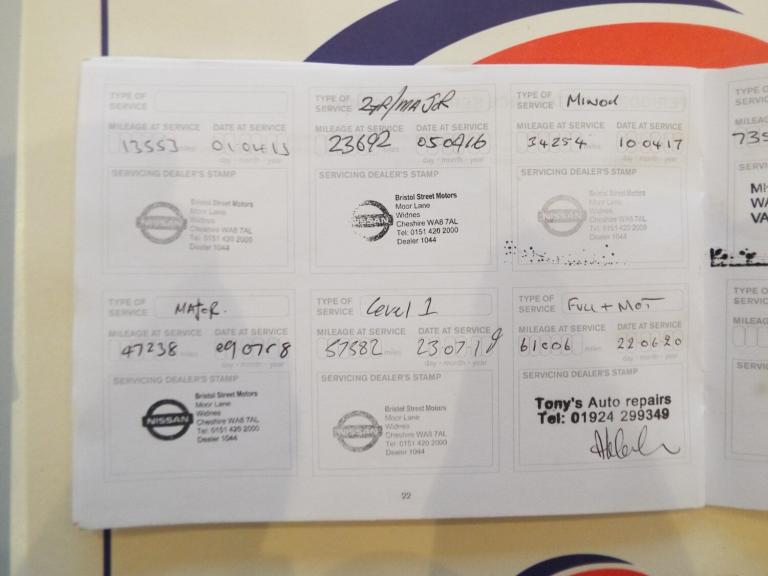 TYPE OF SERVICE
MILEAGE AT SERVICE DATE AT SERVICE
13553 miles 01 04 15
day - month - year
SERVICING DEALER'S STAMP
NISSAN
Bristol Street Motors
Moor Lane
Widnes
Cheshire WA8 7AL
Tel: 0151 420 2000
Dealer 1044
TYPE OF SERVICE 2YR/MAJOR
MILEAGE AT SERVICE DATE AT SERVICE
23692 miles 05 04 16
day - month - year
SERVICING DEALER'S STAMP
NISSAN
Bristol Street Motors
Moor Lane
Widnes
Cheshire WA8 7AL
Tel: 0151 420 2000
Dealer 1044
TYPE OF SERVICE MINOR
MILEAGE AT SERVICE DATE AT SERVICE
34254 miles 10 04 17
day - month - year
SERVICING DEALER'S STAMP
NISSAN
Bristol Street Motors
Moor Lane
Widnes
Cheshire WA8 7AL
Tel: 0151 420 2000
Dealer 1044
TYPE OF SERVICE MAJOR.
MILEAGE AT SERVICE DATE AT SERVICE
47238 miles 09 07 18
day - month - year
SERVICING DEALER'S STAMP
NISSAN
Bristol Street Motors
Moor Lane
Widnes
Cheshire WA8 7AL
Tel: 0151 420 2000
Dealer 1044
TYPE OF SERVICE Level 1
MILEAGE AT SERVICE DATE AT SERVICE
57582 miles 23 07 19
day - month - year
SERVICING DEALER'S STAMP
NISSAN
Bristol Street Motors
Moor Lane
Widnes
Cheshire WA8 7AL
Tel: 0151 420 2000
Dealer 1044
TYPE OF SERVICE FULL + MOT
MILEAGE AT SERVICE DATE AT SERVICE
61006 miles 22 06 20
day - month - year
SERVICING DEALER'S STAMP
Tony's Auto repairs
Tel: 01924 299349
22
TYPE
SERVIC
MILEAG
735
SERVIC
MI
WA
VA
TYPE
SERVIC
MILEAG
SERVIC